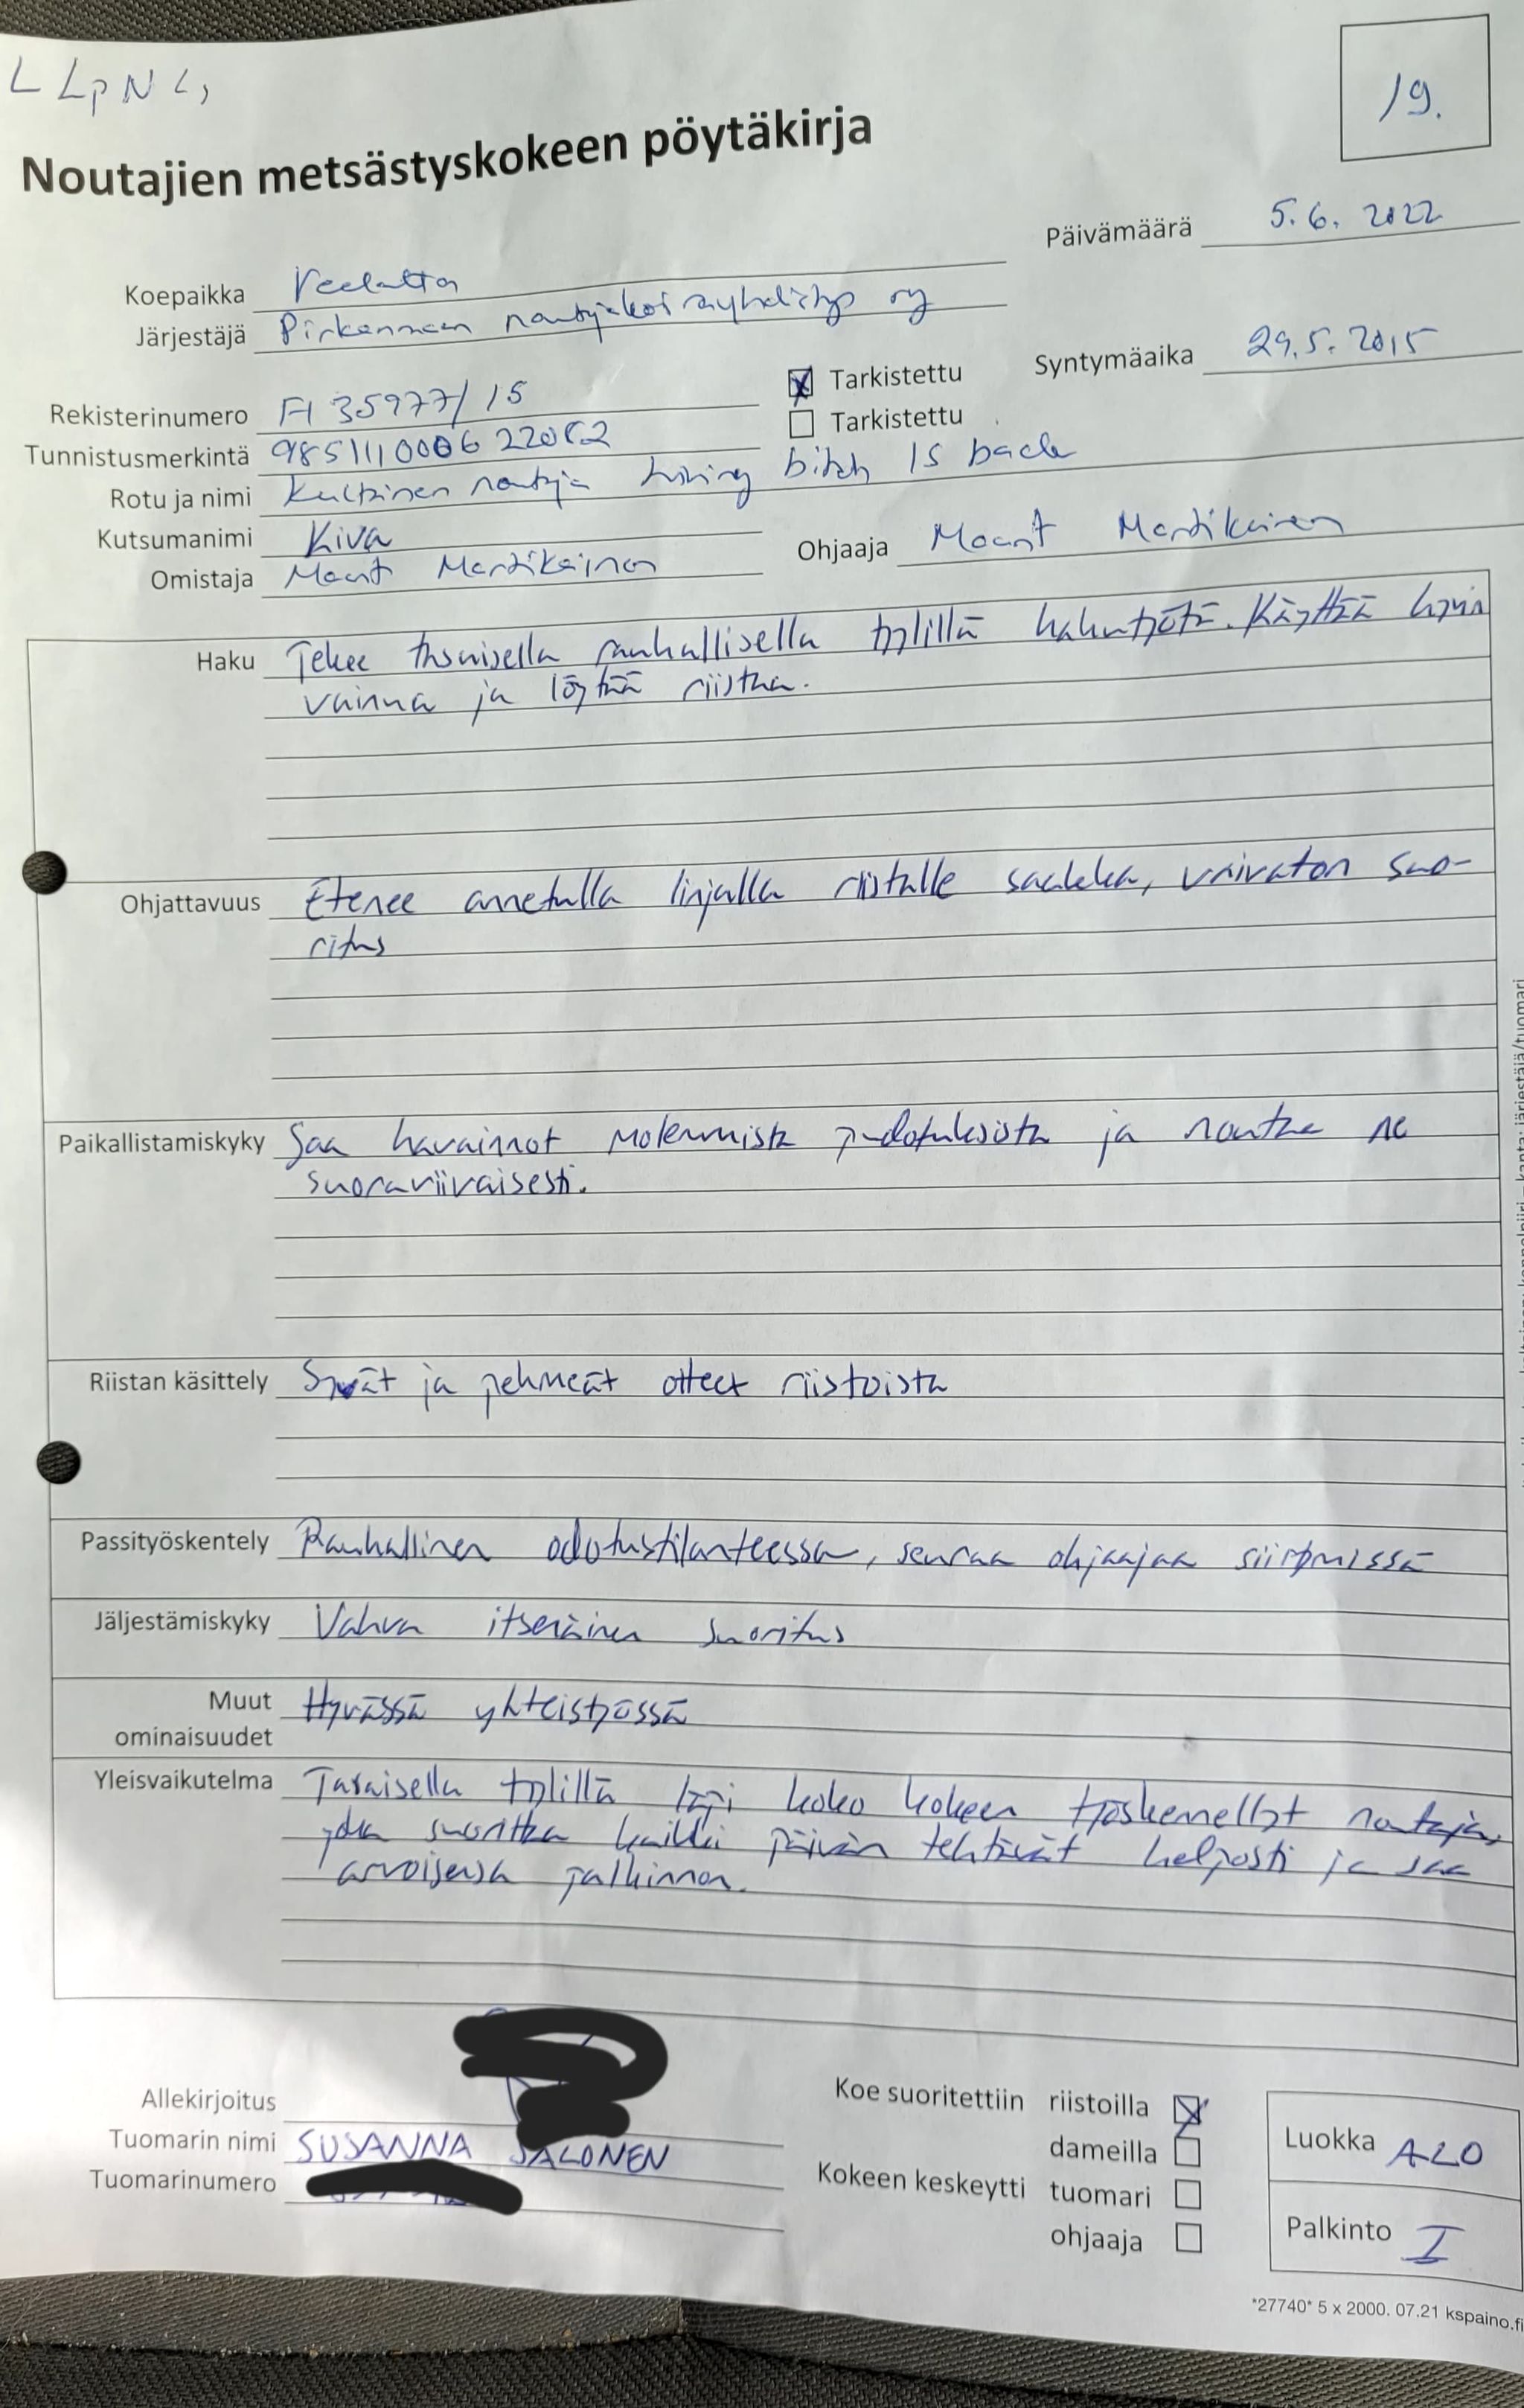 19.
Noutajien metsästyskokeen pöytäkirja
Päivämäärä 5.6. 2022
Koepaikka
Järjestäjä Pirkanmaan noutajakoirayhdistys ry
Tarkistettu Syntymäaika 29.5. 2015
Rekisterinumero FI 35977/15
Tarkistettu
Tunnistusmerkintä
Rotu ja nimi Kultainen noutaja bitch is back
Kutsumanimi Kiva
Ohjaaja Martikainen
Omistaja Martikainen
Haku Tekee tasaisella rauhallisella tyylillä hakutyötä. Käyttää hyvin
vainua ja löytää riistaa.
Ohjattavuus Etenee annetulla linjalla riistalle saakka, vaivaton suo-
ritus
Paikallistamiskyky Saa havainnot molemmista pudotuksista ja noutaa ne
suoraviivaisesti.
Riistan käsittely ja pehmeät otteet riistoista
Passityöskentely Rauhallinen odotustilanteessa, seuraa ohjaajaa siirtymissä
Jäljestämiskyky Vahva itsenäinen suoritus
Muut Hyvässä yhteistyössä
ominaisuudet
Yleisvaikutelma Tasaisella tyylillä läpi koko kokeen työskennellyt noutaja,
joka suorittaa kaikki päivän tehtävät helposti ja saa
arvoisensa palkinnon.
Allekirjoitus
Koe suoritettiin riistoilla
Tuomarin nimi SUSANNA SALONEN
dameilla
Luokka ALO
Tuomarinumero
Kokeen keskeytti tuomari
ohjaaja
Palkinto I
*27740* 5 x 2000. 07.21 kspaino.fi